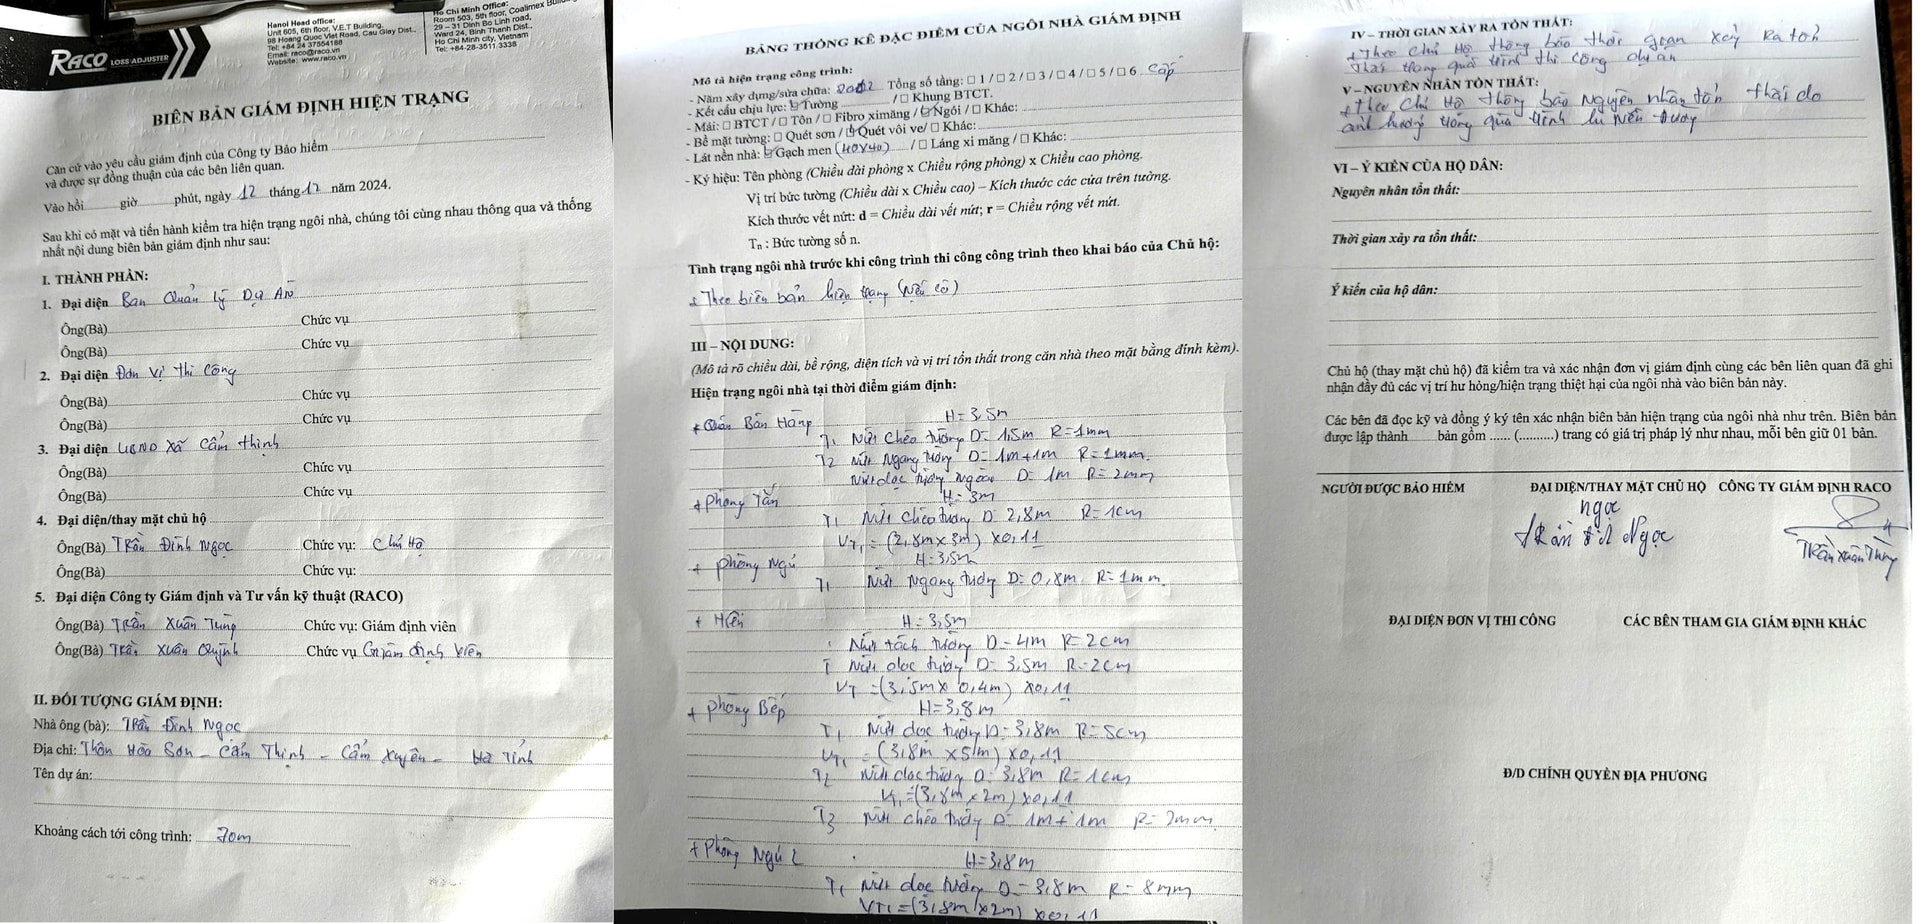 RACO LOSS ADJUSTER
Hanoi Head office:
Unit 605, 6th floor, V.E.T Building,
98 Hoang Quoc Viet Road, Cau Giay Dist.,
Tel: +84 24 37554188
Email: raco@raco.vn
Website: www.raco.vn
Ho Chi Minh Office:
Room 503, 5th floor, Coalimex Building
29 – 31 Dinh Bo Linh road,
Ward 24, Binh Thanh Dist.,
Ho Chi Minh city, Vietnam
Tel: +84-28-3511.3338
BIÊN BẢN GIÁM ĐỊNH HIỆN TRẠNG
Căn cứ vào yêu cầu giám định của Công ty Bảo hiểm
và được sự đồng thuận của các bên liên quan.
Vào hồi giờ phút, ngày 12 tháng 12 năm 2024.
Sau khi có mặt và tiến hành kiểm tra hiện trạng ngôi nhà, chúng tôi cùng nhau thông qua và thống
nhất nội dung biên bản giám định như sau:
I. THÀNH PHẦN:
1. Đại diện Ban Quản lý Dự Án
Ông(Bà) Chức vụ
Ông(Bà) Chức vụ
2. Đại diện Đơn vị thi Công
Ông(Bà) Chức vụ
Ông(Bà) Chức vụ
3. Đại diện UBND xã Cẩm thịnh
Ông(Bà) Chức vụ
Ông(Bà) Chức vụ
4. Đại diện/thay mặt chủ hộ
Ông(Bà) Trần Đình Ngọc Chức vụ: Chủ Hộ
Ông(Bà) Chức vụ:
5. Đại diện Công ty Giám định và Tư vấn kỹ thuật (RACO)
Ông(Bà) Trần Xuân Tùng Chức vụ: Giám định viên
Ông(Bà) Trần Xuân Quỳnh Chức vụ Giám định viên
II. ĐỐI TƯỢNG GIÁM ĐỊNH:
Nhà ông (bà): Trần Đình Ngọc
Địa chỉ: Thôn Hòa Sơn - Cẩm Thịnh - Cẩm Xuyên - Hà Tĩnh
Tên dự án:
Khoảng cách tới công trình: 70m
BẢNG THỐNG KÊ ĐẶC ĐIỂM CỦA NGÔI NHÀ GIÁM ĐỊNH
Mô tả hiện trạng công trình:
- Năm xây dựng/sửa chữa: Tổng số tầng: ☐ 1 / ☐ 2 / ☐ 3 / ☐ 4 / ☐ 5 / ☐ 6 Cấp
- Kết cấu chịu lực: ☑ Tường / ☐ Khung BTCT.
- Mái: ☐ BTCT / ☐ Tôn / ☐ Fibro ximăng / ☑ Ngói / ☐ Khác:
- Bề mặt tường: ☐ Quét sơn / ☑ Quét vôi ve/ ☐ Khác:
- Lát nền nhà: ☑ Gạch men (40x40) / ☐ Láng xi măng / ☐ Khác:
- Ký hiệu: Tên phòng (Chiều dài phòng x Chiều rộng phòng) x Chiều cao phòng.
Vị trí bức tường (Chiều dài x Chiều cao) – Kích thước các cửa trên tường.
Kích thước vết nứt: d = Chiều dài vết nứt; r = Chiều rộng vết nứt.
Tn : Bức tường số n.
Tình trạng ngôi nhà trước khi công trình thi công công trình theo khai báo của Chủ hộ:
+ Theo biên bản hiện trạng (nếu có)
III – NỘI DUNG:
(Mô tả rõ chiều dài, bề rộng, diện tích và vị trí tổn thất trong căn nhà theo mặt bằng đính kèm).
Hiện trạng ngôi nhà tại thời điểm giám định:
+ Quán Bán Hàng H = 3,5m
T1 Nứt chéo tường D= 1,5m R=1mm
T2 Nứt Ngang tường D= 1m+1m R=1mm.
Nứt dọc tường ngoài D= 1m R= 2mm
+ Phòng Tắm H= 3m
T1 Nứt chéo tường D= 2,8m R=1cm
VT1 = (2,8m x 3m) x0,11
+ phòng Ngủ H=3,5m
T1 Nứt Ngang tường D= 0,8m R=1mm.
+ Hiên H= 3,5m
Nứt tách tường D= 4m R=2cm
T Nứt dọc tường D= 3,5m R=2cm
VT =(3,5m x 0,4m) x0,11
+ Phòng Bếp H= 3,8m
T1 Nứt dọc tường D= 3,8m R= 5cm
VT1 = (3,8m x 5m) x0,11
T2 Nứt dọc tường D= 3,8m R=1cm
VT1=(3,8m x 2m) x0,11
T3 Nứt chéo tường D= 1m + 1m R=2mm
+ Phòng Ngủ 2 H=3,8m
T1 Nứt dọc tường D= 3,8m R=8mm
VT1=(3,8m x2m) x0,11
IV – THỜI GIAN XẢY RA TỔN THẤT:
+ Theo Chủ Hộ thông báo thời gian xảy ra tổn
thất trong quá trình thi công dự án
V – NGUYÊN NHÂN TỔN THẤT:
+ Theo Chủ Hộ thông báo Nguyên nhân tổn thất do
ảnh hưởng trong quá trình lu nền đường
VI – Ý KIẾN CỦA HỘ DÂN:
Nguyên nhân tổn thất:
Thời gian xảy ra tổn thất:
Ý kiến của hộ dân:
Chủ hộ (thay mặt chủ hộ) đã kiểm tra và xác nhận đơn vị giám định cùng các bên liên quan đã ghi
nhận đầy đủ các vị trí hư hỏng/hiện trạng thiệt hại của ngôi nhà vào biên bản này.
Các bên đã đọc kỹ và đồng ý ký tên xác nhận biên bản hiện trạng của ngôi nhà như trên. Biên bản
được lập thành bản gồm ...... (..........) trang có giá trị pháp lý như nhau, mỗi bên giữ 01 bản.
NGƯỜI ĐƯỢC BẢO HIỂM ĐẠI DIỆN/THAY MẶT CHỦ HỘ CÔNG TY GIÁM ĐỊNH RACO
ngọc
Trần Đình Ngọc
Trần Xuân Tùng
ĐẠI DIỆN ĐƠN VỊ THI CÔNG CÁC BÊN THAM GIA GIÁM ĐỊNH KHÁC
Đ/D CHÍNH QUYỀN ĐỊA PHƯƠNG